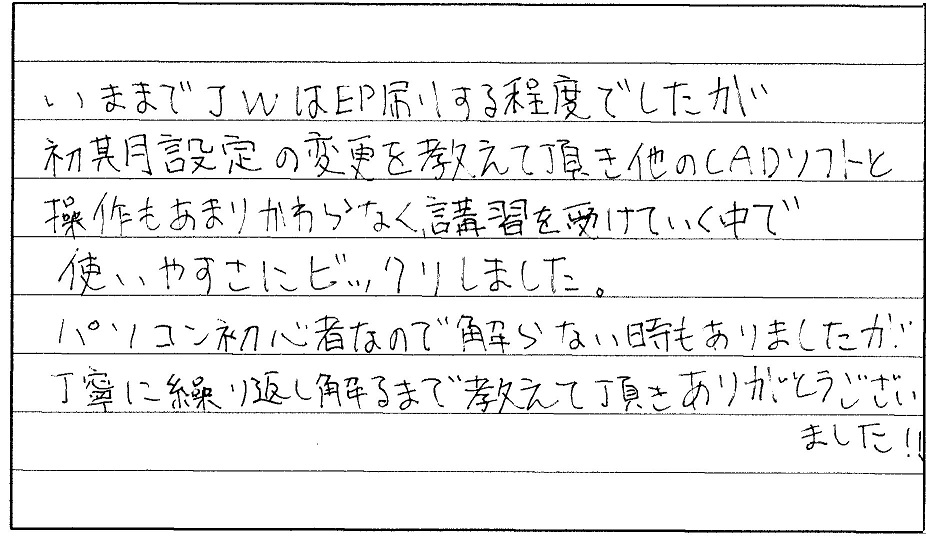 いままでJWは印刷りする程度でしたが
初期設定の変更を教えて頂き他のCADソフトと
操作もあまりかわらなく、講習を受けていく中で
使いやすさにビックリしました。
パソコン初心者なので解らない時もありましたが
丁寧に繰り返し解るまで教えて頂きありがとうござい
ました!!